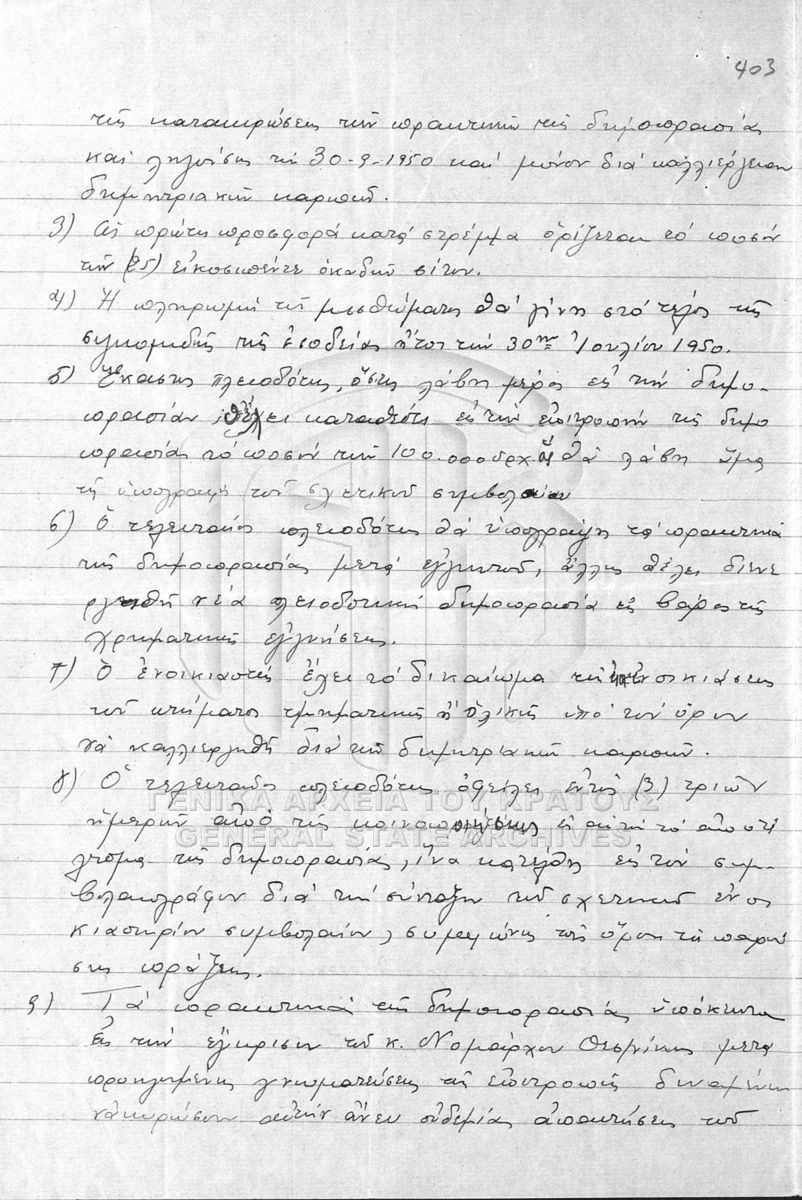 403
τῆς κατακυρώσεως τῶν πρακτικῶν τῆς δημοπρασίας
καὶ λήγουσης τὴν 30-9-1950 καὶ μόνον διὰ καλλιέργειαν
δημητριακῶν καρπῶν.
3) Ὡς πρώτη προσφορὰ κατὰ στρέμμα ὁρίζεται τὸ ποσὸν
τῶν (25) εἰκοσιπέντε ὀκάδων σίτου.
4) Ἡ πληρωμὴ τοῦ μισθώματος θὰ γίνη στὸ τέλος τῆς
συγκομιδῆς τῆς ἐσοδείας ἤτοι τὴν 30ην Ἰουλίου 1950.
5) Ἕκαστος πλειοδότης, ὅστις λάβη μέρος εἰς τὴν δημο-
πρασίαν, θέλει καταθέσει εἰς τὴν ἐπιτροπὴν τῆς δημο
πρασίας τὸ ποσὸν τῶν 100.000 δρχ θὰ λάβη ἅμα
τῇ ὑπογραφῇ τοῦ σχετικοῦ συμβολαίου
6) Ὁ τελευταῖος πλειοδότης θὰ ὑπογράψη τὰ πρακτικὰ
τῆς δημοπρασίας μετὰ ἐγγυητοῦ, ἄλλως θέλει διενε
ργηθῆ νέα πλειοδοτικὴ δημοπρασία εἰς βάρος τῆς
χρηματικῆς ἐγγυήσεως.
7) Ὁ ἐνοικιαστὴς ἔχει τὸ δικαίωμα τῆς ὑπενοικιάσεως
τοῦ κτήματος τμηματικῆς ἢ ὁλικῆς ὑπὸ τὸν ὅρον
νὰ καλλιεργηθῆ διὰ τῆς δημητριακῶν καρπῶν.
8) Ὁ τελευταῖος πλειοδότης ὀφείλει ἐντὸς (3) τριῶν
ἡμερῶν ἀπὸ τῆς κοινοποιήσεως εἰς αὐτὸν τὸ ἀποτέ
λεσμα τῆς δημοπρασίας, ἵνα κατέλθη εἰς τὸν συμ-
βολαιογράφον διὰ τὴν σύνταξιν τοῦ σχετικοῦ ἐνοι
κιαστηρίου συμβολαίου, συμφώνως τοῖς ὅροις τῆς παρού
σης πράξεως.
9) Τὰ πρακτικὰ τῆς δημοπρασίας ὑπόκεινται
εἰς τὴν ἔγκρισιν τοῦ κ. Νομάρχου Θεσ/νίκης μετὰ
προηγουμένης γνωματεύσεως τῆς ἐπιτροπῆς δυναμένης
νὰ κυρώσουν αὐτὴν ἄνευ οὐδεμίας ἀπαιτήσεως τοῦ
ΓΕΝΙΚΑ ΑΡΧΕΙΑ ΤΟΥ ΚΡΑΤΟΥΣ
GENERAL STATE ARCHIVES